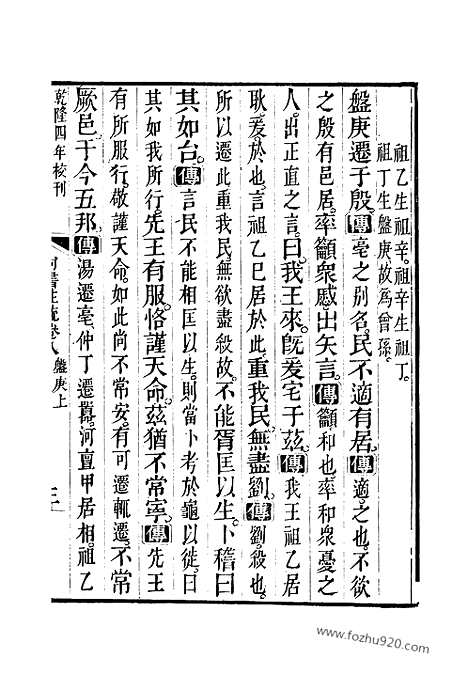 祖乙生祖辛。祖辛生祖丁。
祖丁生盤庚故爲曾孫。
盤庚遷于殷。傳亳之别名。民不適有居。傳適。之也。不欲
之殷有邑居。率籲衆慼出矢言。傳籲和也率和衆憂之
人。出正直之言。曰。我王來。旣爰宅于茲。傳我王祖乙居
耿。爰。於也。言祖乙已居於此。重我民。無盡劉。傳劉。殺也。
所以遷此重我民。無欲盡殺故。不能胥匡以生。卜稽曰
其如台。傳言民不能相匡以生。則當卜考於龜以徙。曰
其如我所行。先王有服。恪謹天命。茲猶不常寧。傳先王
有所服行。敬謹天命。如此尚不常安。有可遷輒遷。不常
厥邑。于今五邦。傳湯遷亳。仲丁遷囂。河亶甲居相。祖乙
乾隆四年校刊
尚書注疏卷八 盤庚上
www.fozhu920.com